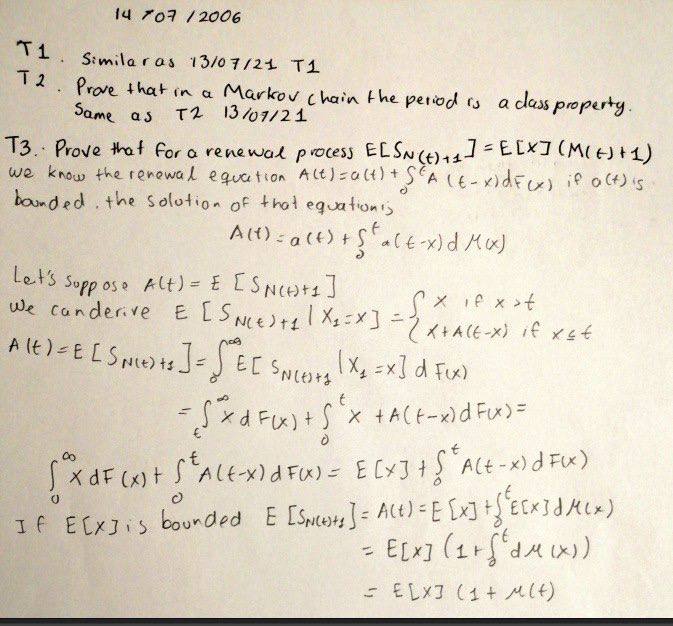 14 / 07 / 2006
T1. Similar as 13/07/21 T1
T2. Prove that in a Markov chain the period is a class property.
Same as T2 13/07/21
T3.. Prove that for a renewal process E[S_{N(t)+1}] = E[X](M(t)+1)
we know the renewal equation A(t)=a(t)+∫_0^t A(t-x)dF(x) if a(t) is
bounded. the solution of that equation is
A(t)=a(t)+∫_0^t a(t-x)dM(x)
Let's suppose A(t) = E[S_{N(t)+1}]
We can derive E[S_{N(t)+1} | X_1=x] = { x if x>t
x+A(t-x) if x≤t
A(t)=E[S_{N(t)+1}]=∫_0^∞ E[S_{N(t)+1} | X_1=x] dF(x)
=∫_t^∞ x dF(x)+∫_0^t x+A(t-x)dF(x)=
∫_0^∞ x dF(x)+∫_0^t A(t-x)dF(x) = E[x]+∫_0^t A(t-x)dF(x)
If E[x] is bounded E[S_{N(t)+1}]=A(t)=E[x]+∫_0^t E[x]dM(x)
= E[x](1+∫_0^t dM(x))
= E[x](1+M(t)